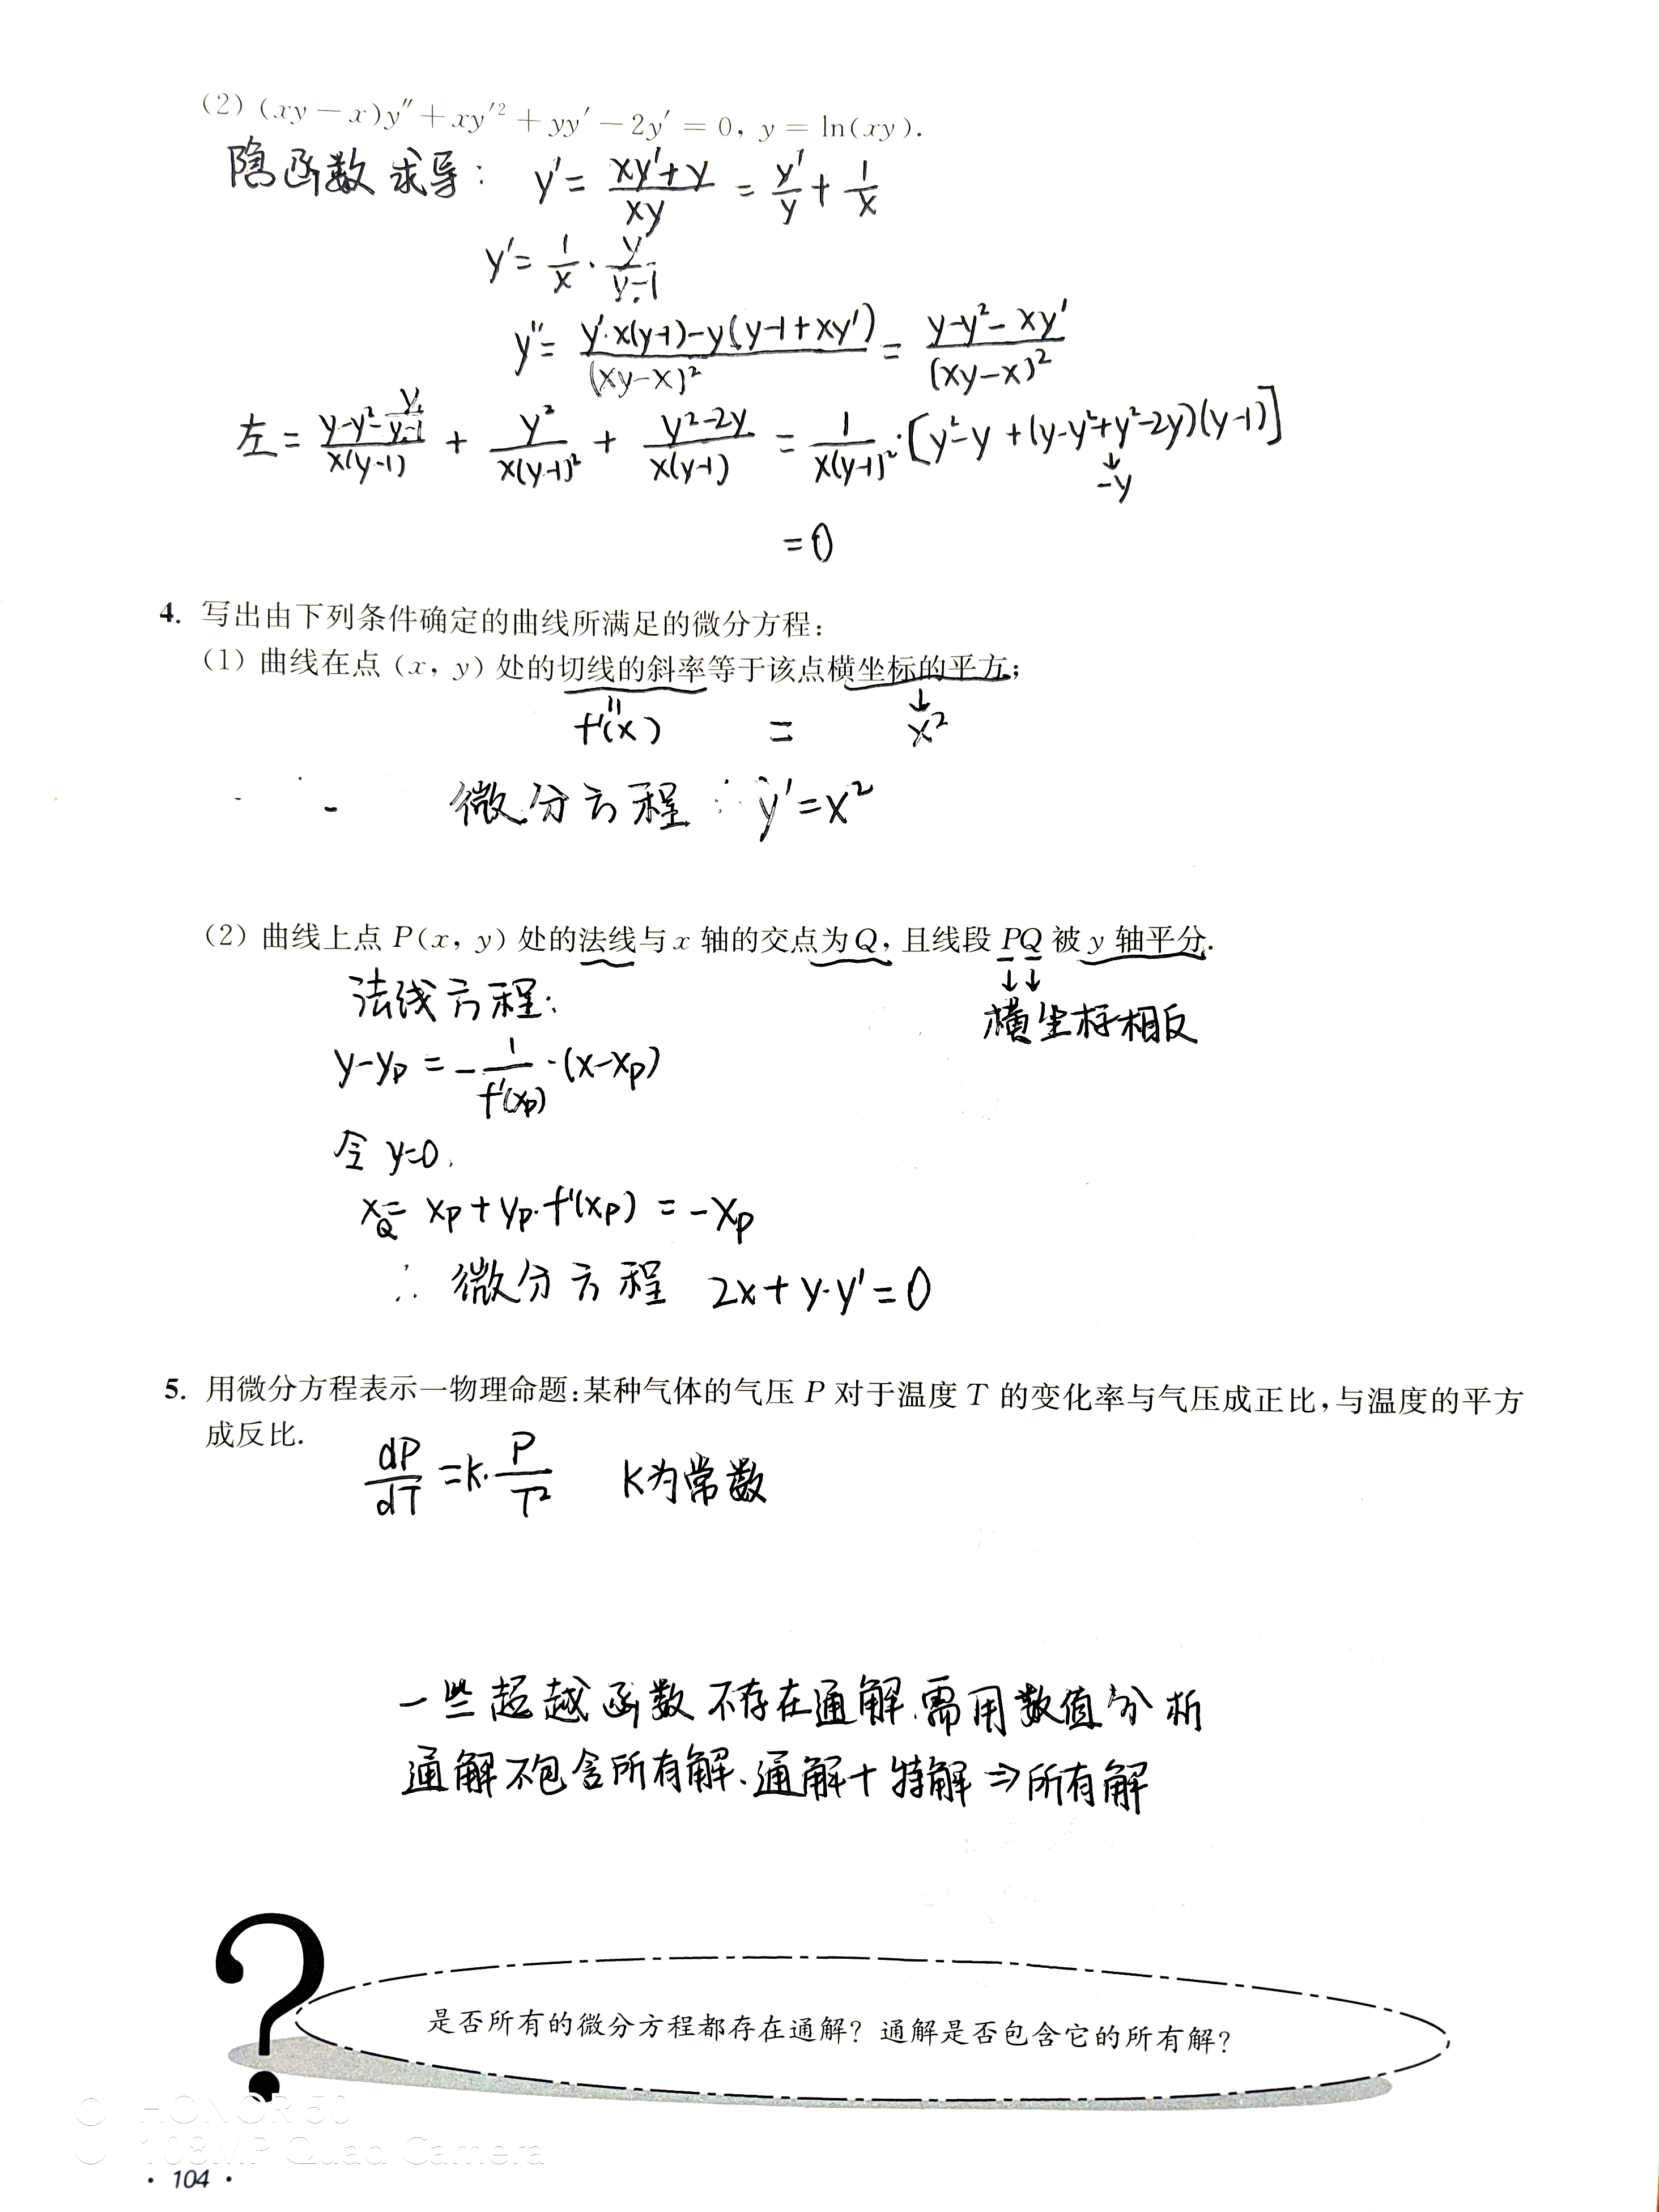 (2) (xy－x)y″＋xy′²＋yy′－2y′＝0, y＝ln(xy).
隐函数求导: y′= (xy′+y)/(xy) = y′/y + 1/x
y′= 1/x · y/(y-1)
y″= (y′·x(y-1)-y(y-1+xy′))/(xy-x)² = (y-y²-xy′)/(xy-x)²
左= (y-y²-y/(y-1))/(x(y-1)) + y²/(x(y-1)²) + (y²-2y)/(x(y-1)) = 1/(x(y-1)²)·[y²-y+(y-y²+y²-2y)(y-1)]
↓
-y
=0
4. 写出由下列条件确定的曲线所满足的微分方程:
(1) 曲线在点 (x, y) 处的切线的斜率等于该点横坐标的平方;
f′(x) = x²
微分方程: y′=x²
(2) 曲线上点 P(x, y) 处的法线与 x 轴的交点为 Q, 且线段 PQ 被 y 轴平分.
法线方程:
横坐标相反
y-yₚ = -1/f′(xₚ)·(x-xₚ)
令 y=0.
x_Q= xₚ+yₚ·f′(xₚ) = -xₚ
∴ 微分方程 2x+y·y′=0
5. 用微分方程表示一物理命题:某种气体的气压 P 对于温度 T 的变化率与气压成正比,与温度的平方
成反比.
dP/dT =k·P/T² k为常数
一些超越函数不存在通解.需用数值分析
通解不包含所有解.通解+特解⇒所有解
?
是否所有的微分方程都存在通解? 通解是否包含它的所有解?
HONOR 50
108MP Quad Camera
· 104 ·